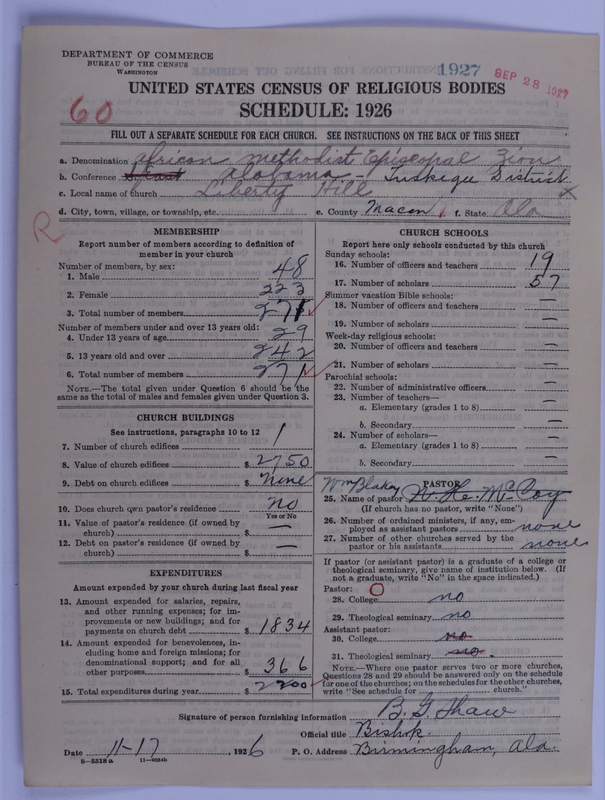 DEPARTMENT OF COMMERCE
BUREAU OF THE CENSUS
WASHINGTON
1927
SEP 28 1927
UNITED STATES CENSUS OF RELIGIOUS BODIES
60
SCHEDULE: 1926
FILL OUT A SEPARATE SCHEDULE FOR EACH CHURCH. SEE INSTRUCTIONS ON THE BACK OF THIS SHEET
a. Denomination African Methodist Episcopal Zion
b. Conference East Alabama - Tuskegee District
c. Local name of church Liberty Hill x
d. City, town, village, or township, etc. e. County Macon f. State Ala
R
MEMBERSHIP
Report number of members according to definition of
member in your church
Number of members, by sex:
1. Male 48
2. Female 223
3. Total number of members 271
Number of members under and over 13 years old:
4. Under 13 years of age 29
5. 13 years old and over 242
6. Total number of members 271
NOTE.—The total given under Question 6 should be the
same as the total of males and females given under Question 3.
CHURCH BUILDINGS
See instructions, paragraphs 10 to 12
7. Number of church edifices 1
8. Value of church edifices $ 2750
9. Debt on church edifices $ none
10. Does church own pastor's residence no
Yes or No
11. Value of pastor's residence (if owned by
church) $ —
12. Debt on pastor's residence (if owned by
church) $ —
EXPENDITURES
Amount expended by your church during last fiscal year
13. Amount expended for salaries, repairs,
and other running expenses; for im-
provements or new buildings; and for
payments on church debt $ 1834
14. Amount expended for benevolences, in-
cluding home and foreign missions; for
denominational support; and for all
other purposes $ 366
15. Total expenditures during year $ 2200
CHURCH SCHOOLS
Report here only schools conducted by this church
Sunday schools:
16. Number of officers and teachers 19
17. Number of scholars 57
Summer vacation Bible schools:
18. Number of officers and teachers —
19. Number of scholars —
Week-day religious schools:
20. Number of officers and teachers —
21. Number of scholars —
Parochial schools:
22. Number of administrative officers —
23. Number of teachers—
a. Elementary (grades 1 to 8) —
b. Secondary —
24. Number of scholars—
a. Elementary (grades 1 to 8) —
b. Secondary —
PASTOR
Wm Blakey
25. Name of pastor W. H. McCoy
(If church has no pastor, write "None")
26. Number of ordained ministers, if any, em-
ployed as assistant pastors none
27. Number of other churches served by the
pastor or his assistants none
If pastor (or assistant pastor) is a graduate of a college or
theological seminary, give name of institution below. (If
not a graduate, write "No" in the space indicated.)
Pastor: O
28. College no
29. Theological seminary no
Assistant pastor:
30. College no
31. Theological seminary no
NOTE.—Where one pastor serves two or more churches,
Questions 28 and 29 should be answered only on the schedule
for one of the churches; on the schedules for the other churches,
write "See schedule for church."
Signature of person furnishing information B. G. Shaw
Official title Bishop
Date 11-17, 1926 P. O. Address Birmingham, Ala.